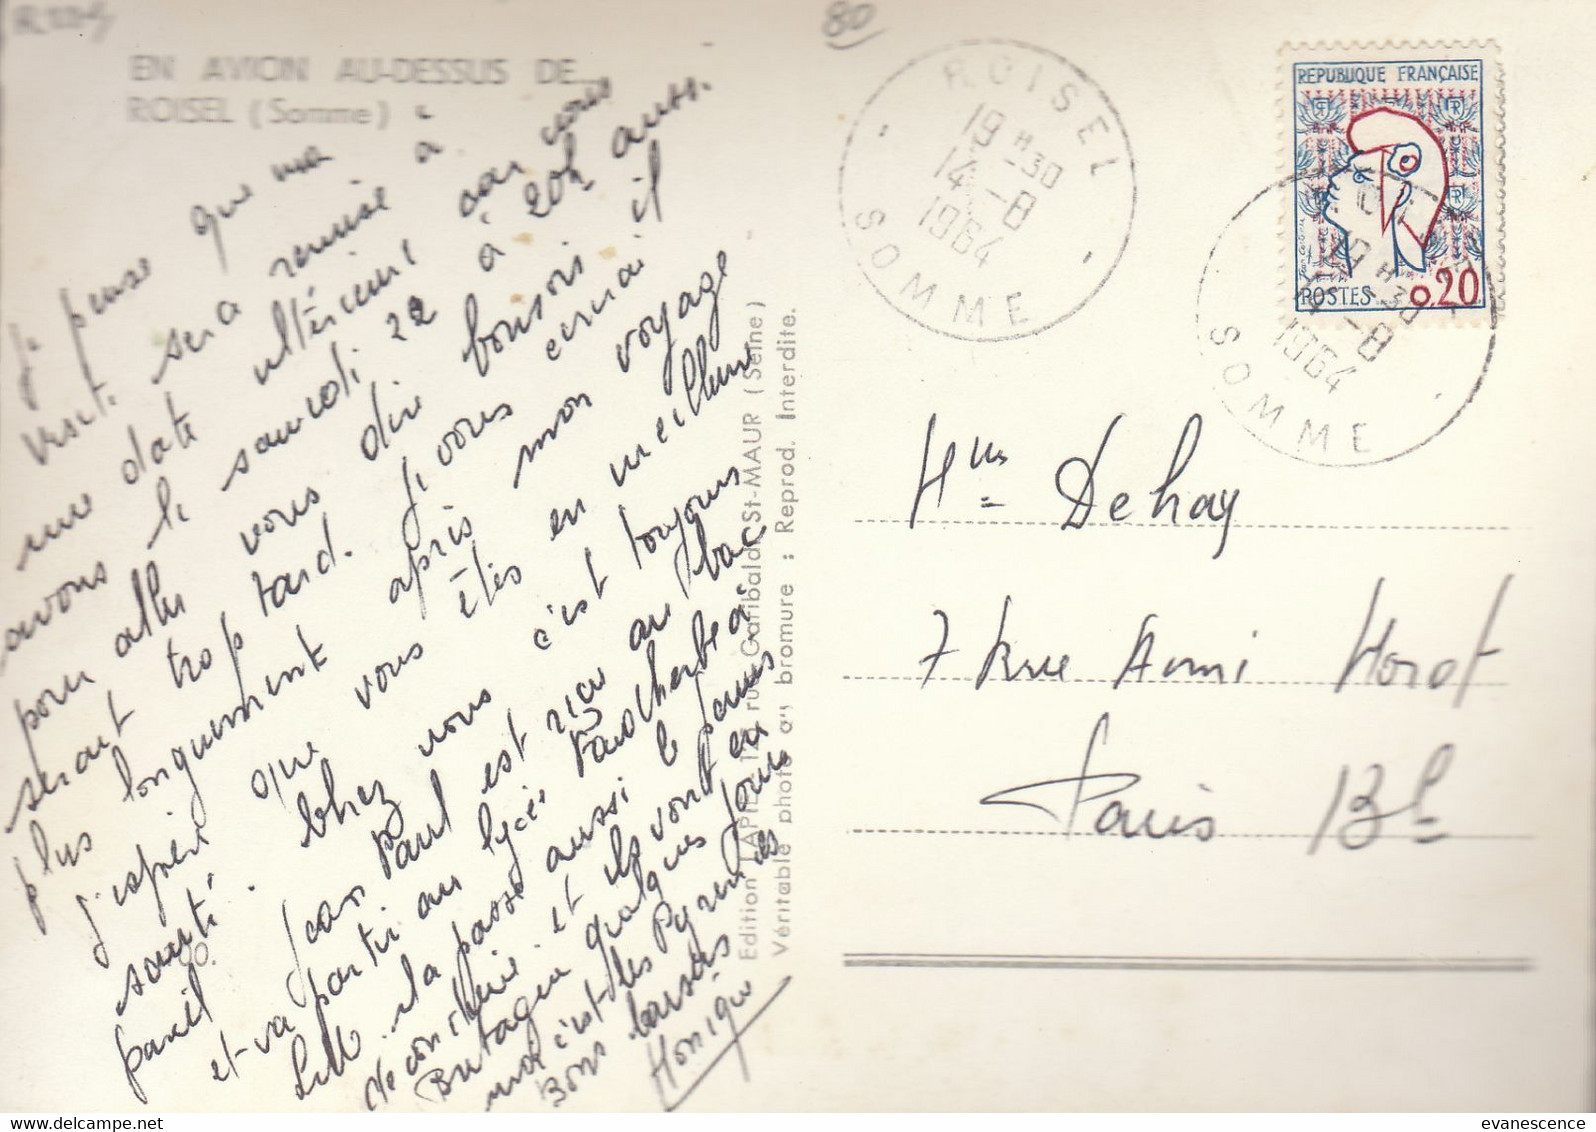 EN AVION AU-DESSUS DE
ROISEL (Somme)
je pense que ma
visite sera remise à
une date ultérieure car nous
avons le samedi 22 à 20h aussi.
pour aller vous dire bonsoir il
serait trop tard. Je vous écrirai
plus longuement après mon voyage
J'espère que vous êtes en meilleure
santé. Chez nous c'est toujours
pareil
Jean Paul est reçu au bac
et va partir au lycée Faidherbe à
Lille
il a passé aussi le permis
de conduire et ils vont en
Bretagne quelques jours
moi c'est les Pyrénées
Bons baisers
Monique
Edition LAPIE rue Garibaldi St-MAUR (Seine)
Véritable photo au bromure : Reprod. Interdite.
80
ROISEL
19 H 30
14 - 8
1964
SOMME
REPUBLIQUE FRANÇAISE
POSTES 0,20
19 H 30
14 - 8
1964
SOMME
Mme Dehay
7 Rue Ami Horot
Paris 13e
evanescence